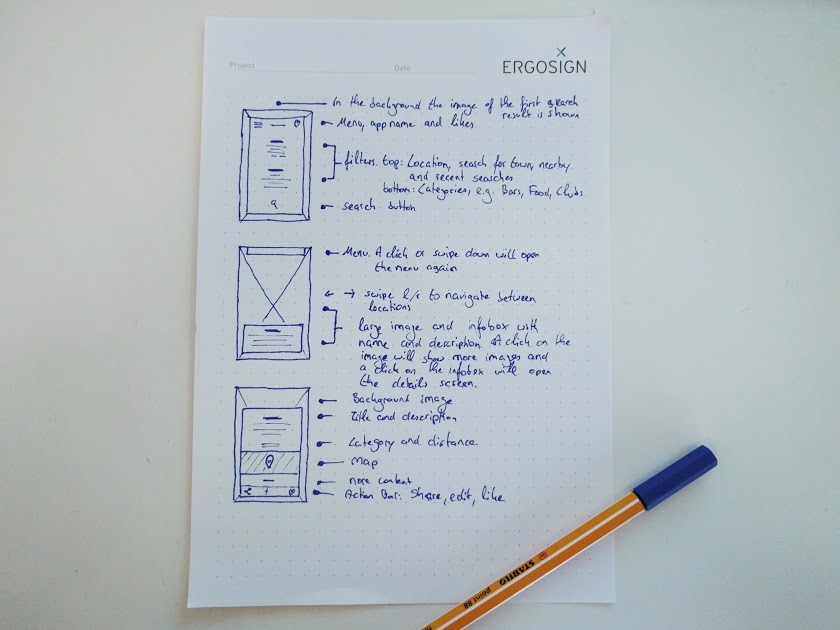 Project
Date
ERGOSIGN
In the background the image of the first search
result is shown
Menu, app name and likes
filters. top: Location, search for town, nearby
and recent searches
bottom: Categories, e.g. Bars, Food, Clubs
search button
Menu. A click or swipe down will open
the menu again
← → swipe l/r to navigate between
locations
large image and infobox with
name and description. A click on the
image will show more images and
a click on the infobox will open
the details screen.
Background image
Title and description
Category and distance
Map
more content
Action Bar: Share, edit, like
STABILO
point 88